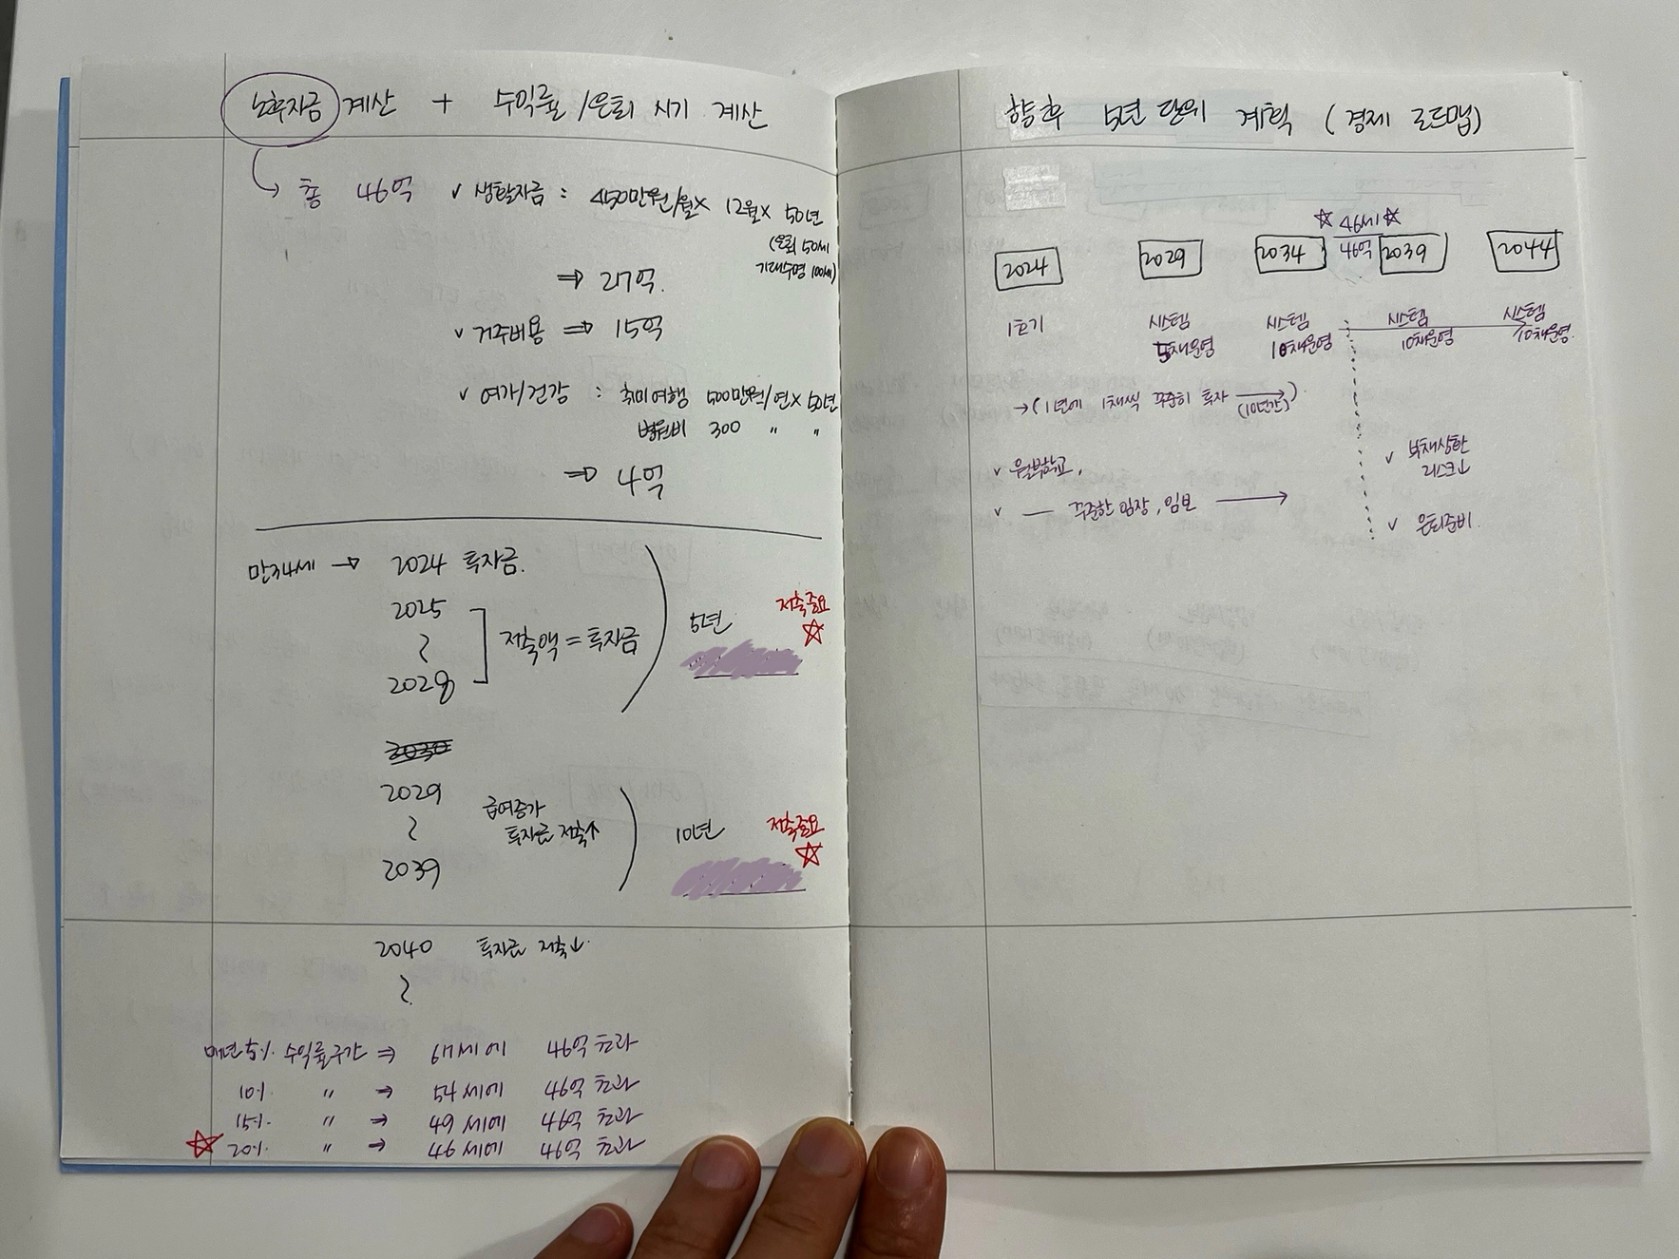 노후자금 계산 + 수익률/은퇴 시기 계산
총 46억 v 생활자금 : 450만원/월 x 12월 x 50년
(은퇴 50세
기대수명 100세)
⇒ 27억.
v 거주비용 ⇒ 15억
v 여가/건강 : 취미여행 500만원/연 x 50년
병원비 300 〃 〃
⇒ 4억
만34세 → 2024 투자금.
2025
~
2028
저축액 = 투자금
5년
저축중요
☆
2030
2029
~
2039
급여증가
투자금 저축↑
10년
저축중요
☆
2040 투자금 저축↓
~
매년 5% 수익률구간 ⇒ 67세에 46억 초과
10% 〃 → 54세에 46억 초과
15% 〃 → 49세에 46억 초과
☆ 20% 〃 → 46세에 46억 초과
향후 5년 단위 계획 (경제 로드맵)
☆ 46세 ☆
2024 2029 2034 46억 2039 2044
1호기
시스템
5채운영
시스템
10채운영
시스템
10채운영
시스템
10채운영.
→ (1년에 1채씩 꾸준히 투자 → )
(10년간)
v 월부학교,
v — 꾸준한 임장, 임보 →
v 부채상환
리스크↓
v 은퇴준비.